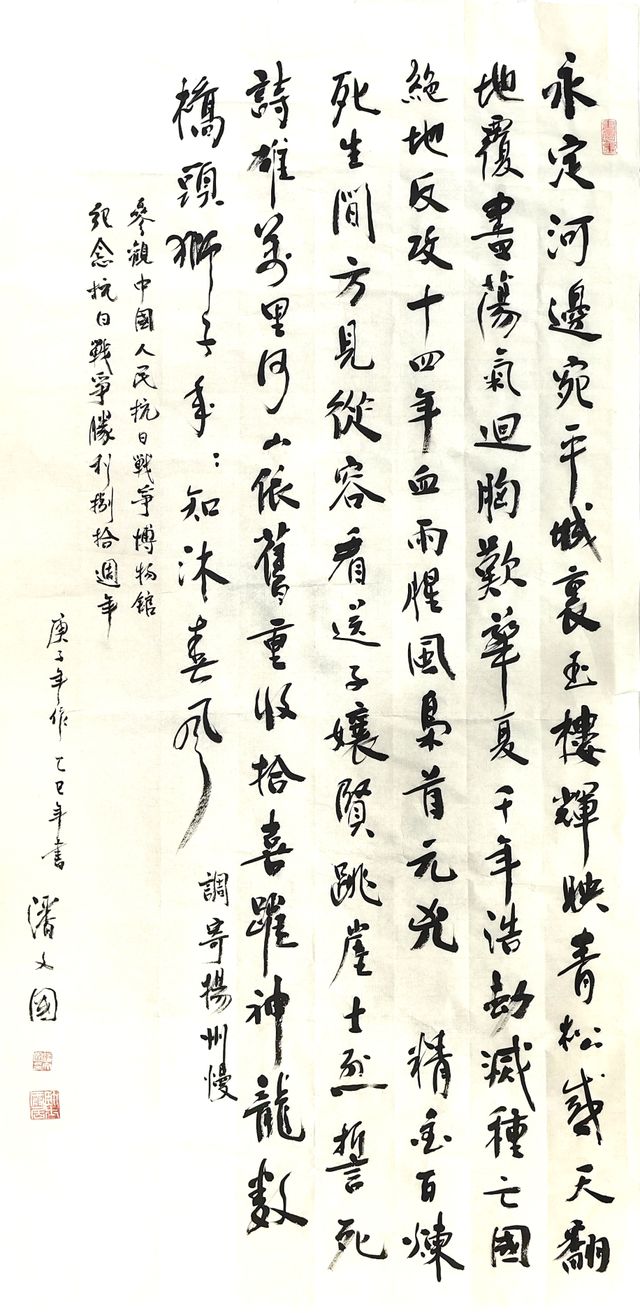 永定河邊宛平城裏玉樓輝映青松感天翻
地覆盡蕩氣迴胸歎華夏千年浩劫滅種亡國
絕地反攻十四年血雨腥風梟首元兇　精金百煉
死生間方見從容看送子孃賢跳崖士烈誓死
詩雄萬里河山依舊重收拾喜躍神龍數
橋頭獅子年：知沐春風
調寄揚州慢
參觀中國人民抗日戰爭博物館
紀念抗日戰爭勝利捌拾週年
庚子年作乙巳年書
潘文國